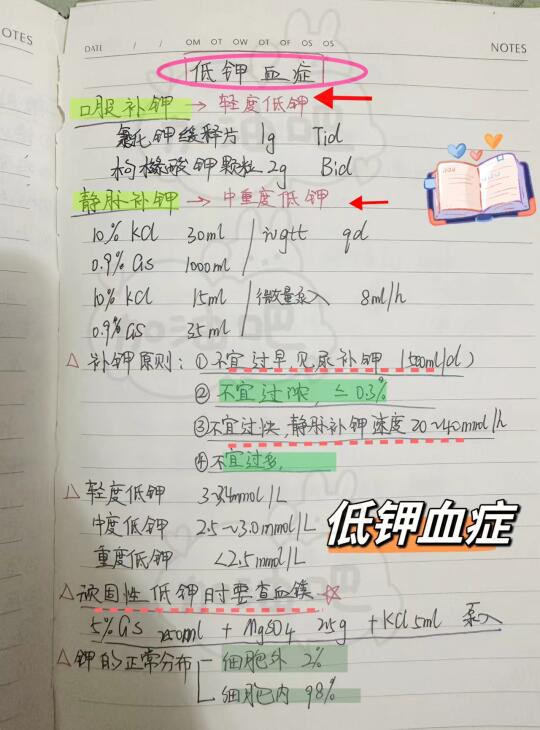 OTES
DATE / / OM OT OW OT OF OS OS NOTES
低钾血症
口服补钾 → 轻度低钾
氯化钾缓释片 1g Tid
枸橼酸钾颗粒 2g Bid
静脉补钾 → 中重度低钾
10% KCl 30ml / ivgtt qd
0.9% GS 1000ml
10% KCl 15ml / 微量泵入 8ml/h
0.9% GS 35ml
△ 补钾原则: ①不宜过早见尿补钾 (500ml/d)
②不宜过浓, ≤0.3%
③不宜过快, 静脉补钾速度 20~40mmol/h
④不宜过多,
△ 轻度低钾 3~3.4mmol/L
中度低钾 2.5~3.0mmol/L
重度低钾 <2.5mmol/L
低钾血症
△ 顽固性低钾时要查血镁 ☆
5% GS 250ml + MgSO4 2.5g + KCl 5ml 泵入
△ 钾的正常分布 细胞外 2%
细胞内 98%
加油吧